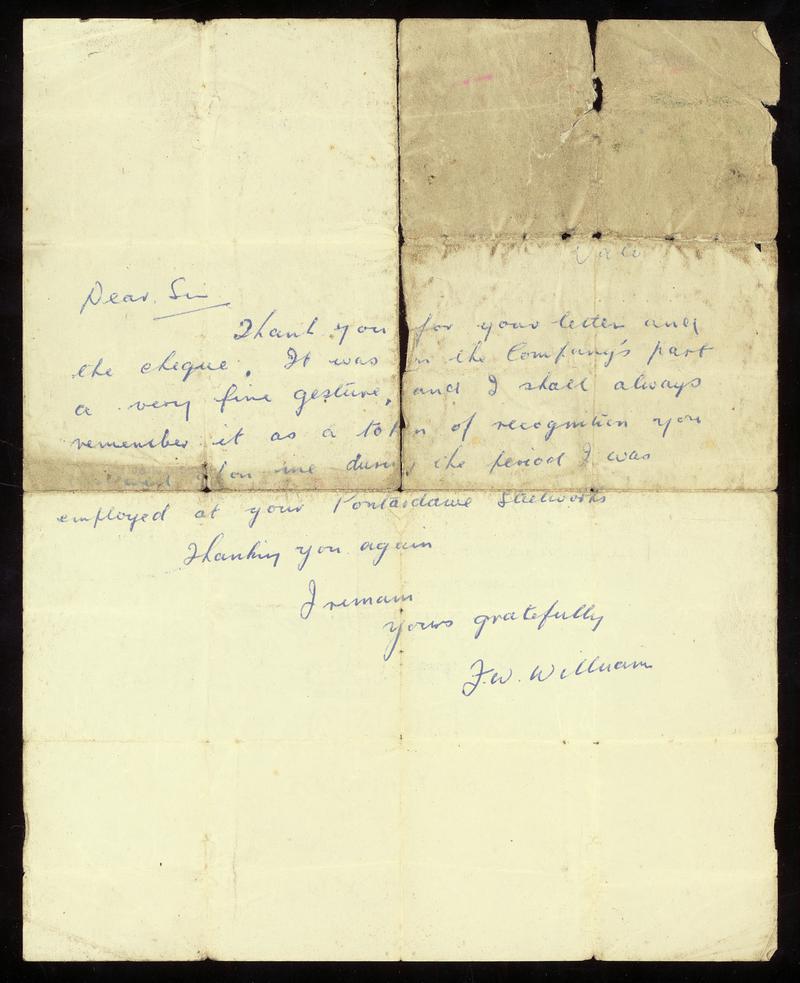 Dear Sir
Thank you for your letter and
the cheque. It was n the Company's part
a very fine gesture, and I shall always
remember it as a tok n of recognition you
on me durin the period I was
employed at your Pontardawe Steelworks
Thanking you again
I remain
yours gratefully
F.W. William